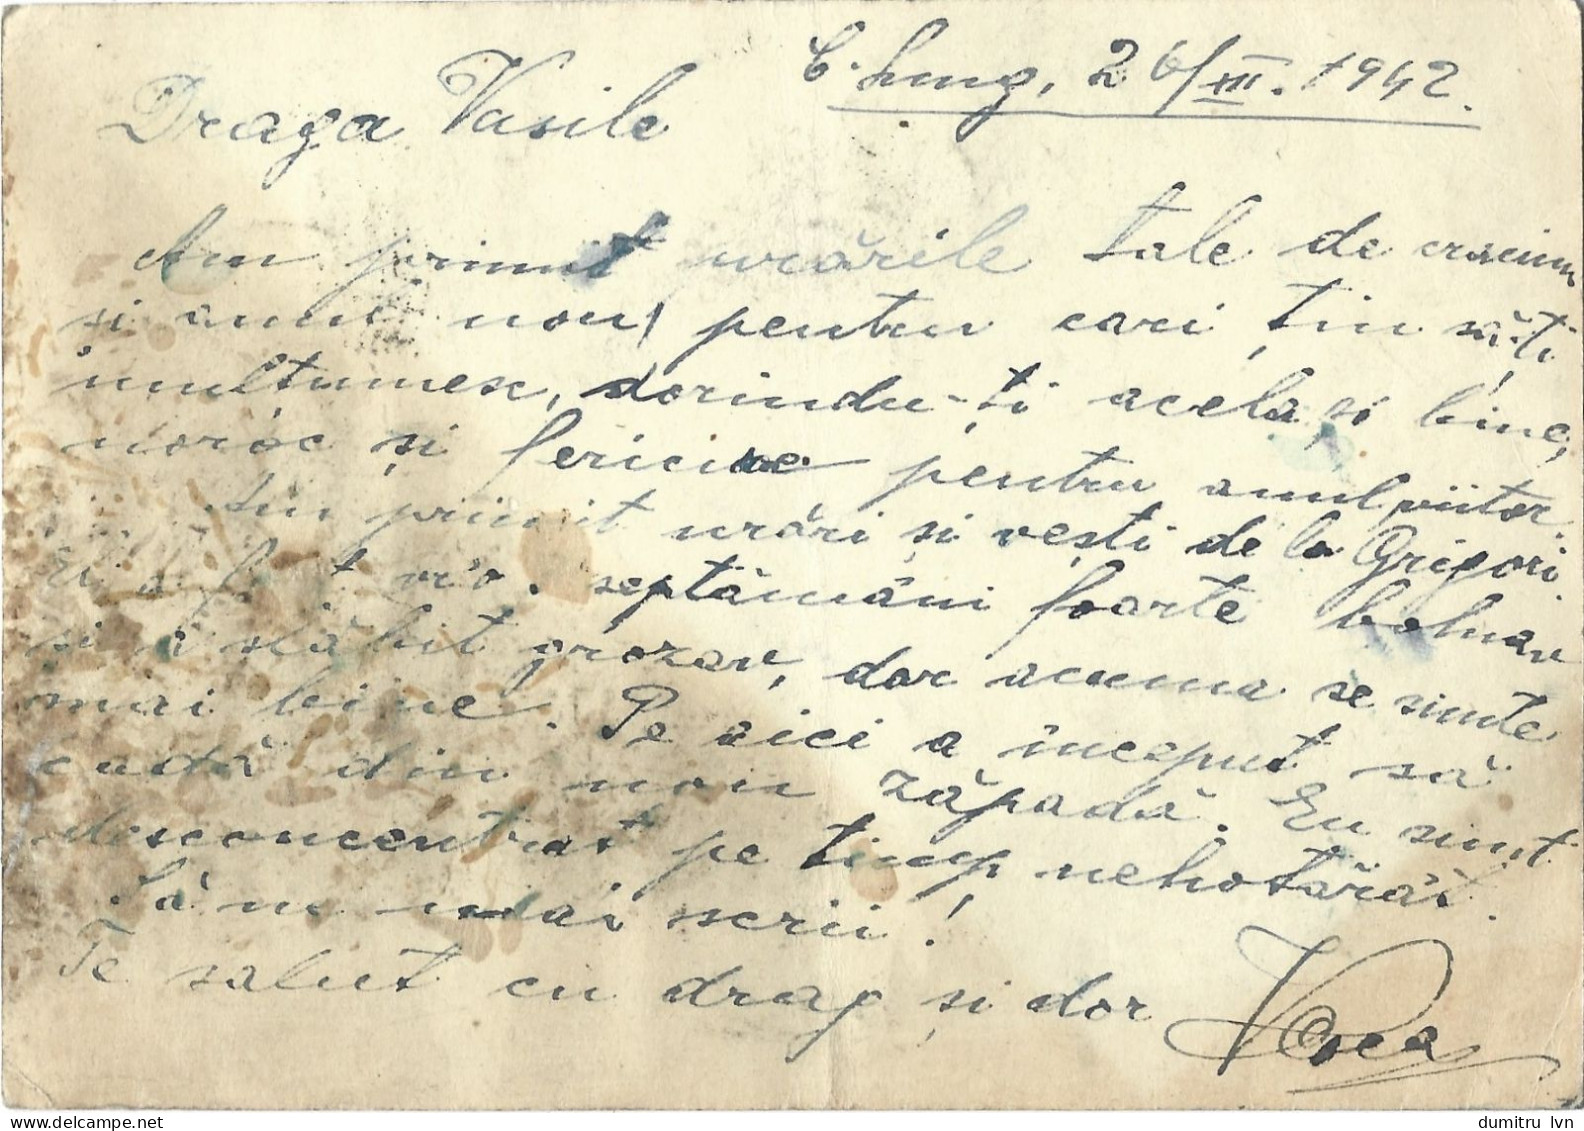 C. Lung, 26/XII. 1942.
Draga Vasile
Am primit urările tale de craciun
si anul nou, pentru cari țin să-ți
mulțumesc, dorindu-ți acelaș bine,
noroc și fericire pentru anul viitor.
Am primit urări și vești de la Grigori.
El a fost vr'o septămâni foarte bolnav
si a slăbit grozav, dar acuma se simte
mai bine. Pe aici a început să
cadă din nou zăpadă. Eu sunt
desconcentrat pe timp nehotărât.
Să ne mai scrii!
Te salut cu drag și dor
dumitru lvn